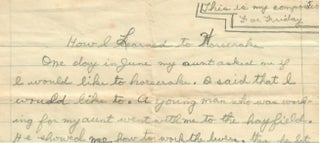 This is my compos
For Friday
How I Learned to Horserake
One day in June my aunt asked me if
I would like to horserake. I said that I
would like to. A young man who was work-
ing for my aunt went with me to the hayfield.
He showed me how to work the levers. He let